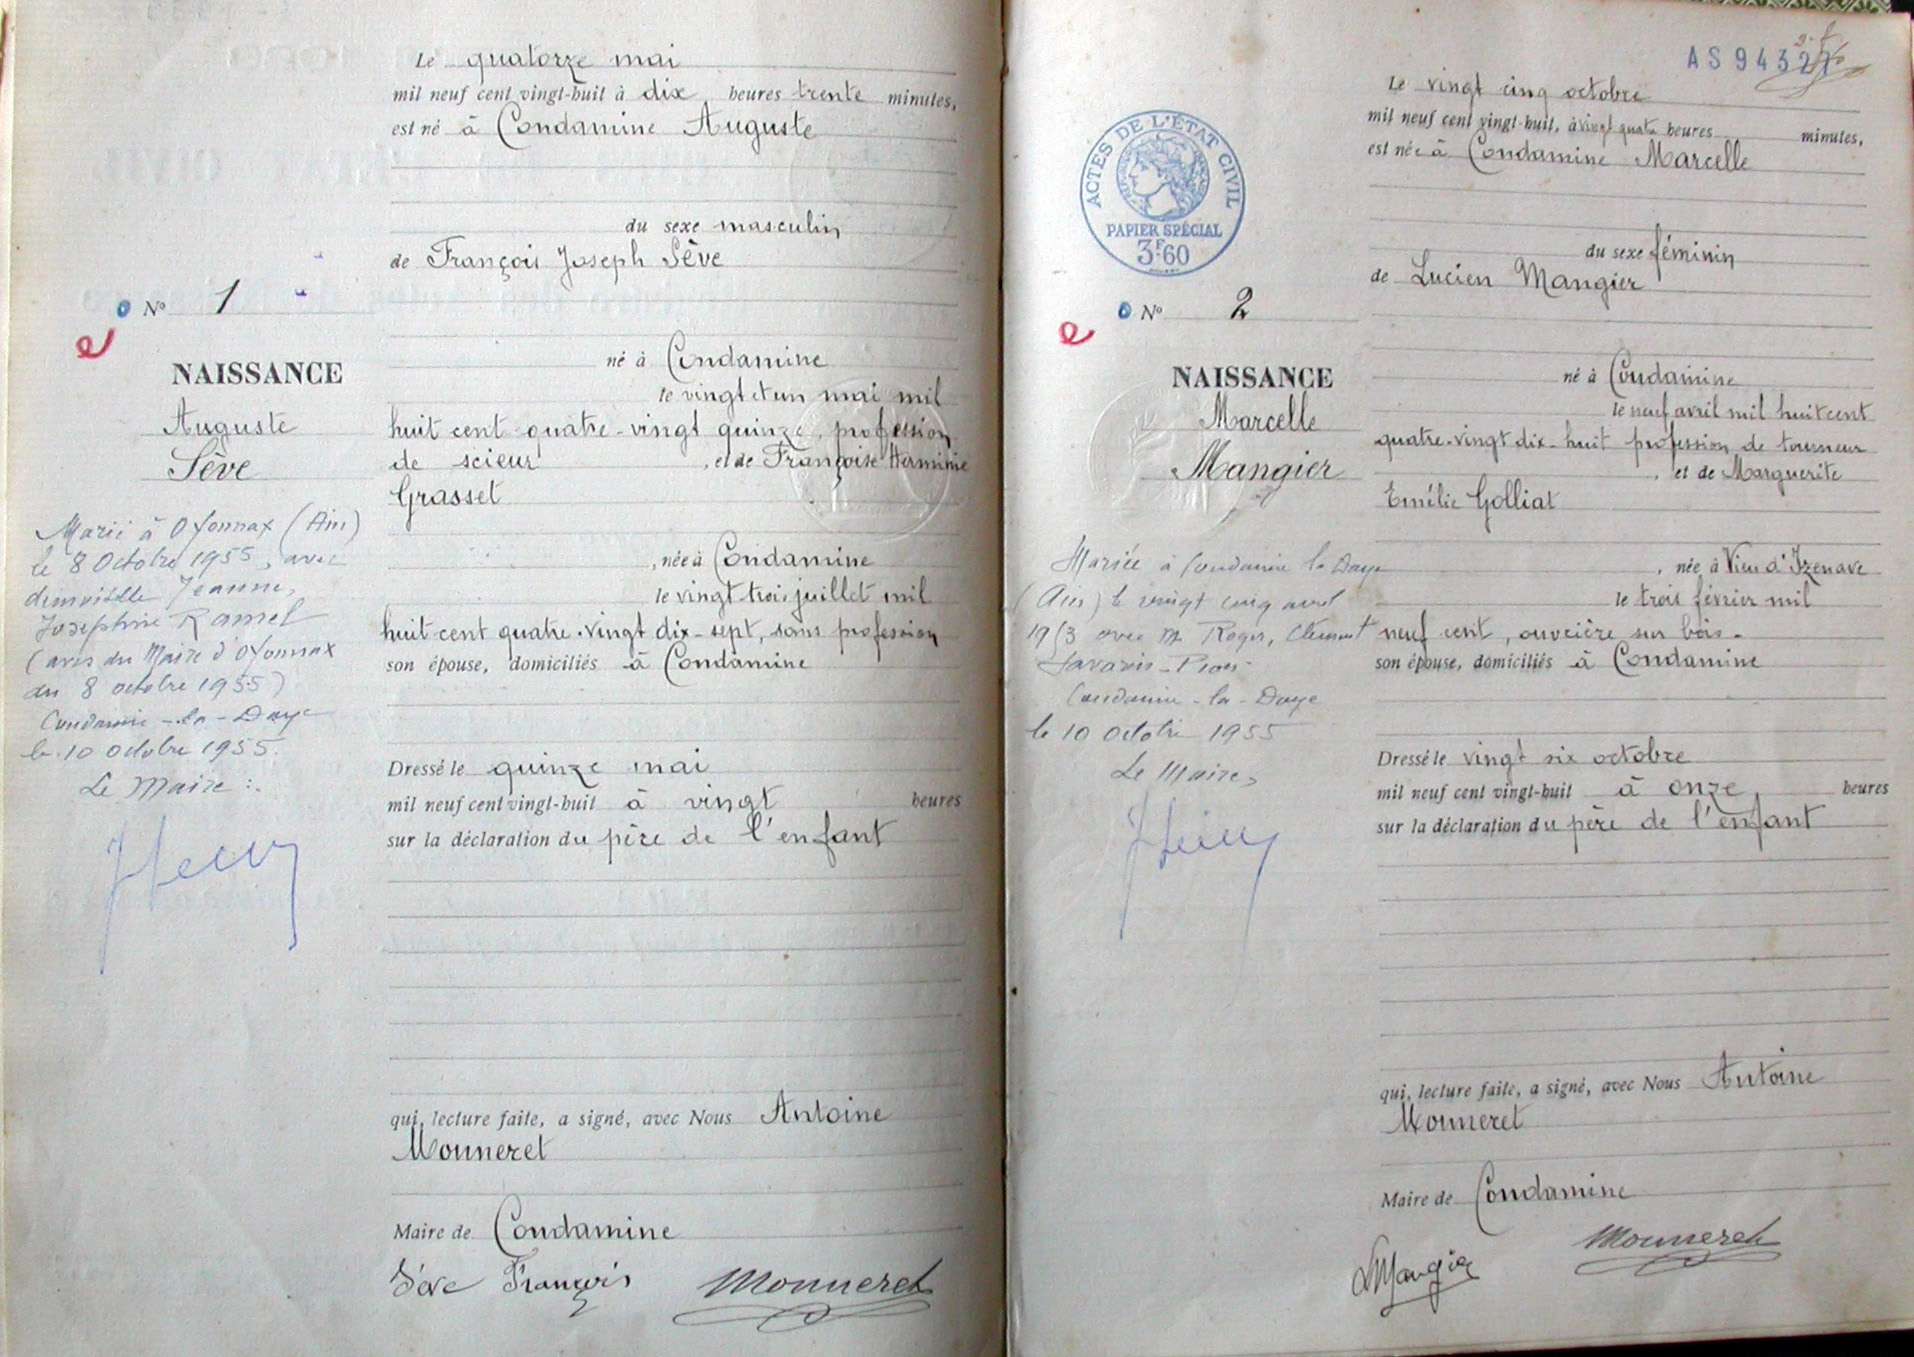 Le quatorze mai
mil neuf cent vingt-huit à dix heures trente minutes,
est né à Condamine Auguste
du sexe masculin
de François Joseph Sève
N° 1
né à Condamine
NAISSANCE
le vingt et un mai mil
Auguste
huit cent quatre-vingt quinze, profession
Sève
de scieur, et de Françoise Herminie
Grasset
Marié à Oyonnax (Ain)
le 8 Octobre 1955, avec
demoiselle Jeanne,
Joséphine Ramel
(avis du Maire d'Oyonnax
du 8 octobre 1955)
Condamine-la-Doye
le 10 octobre 1955.
Le Maire :.
, née à Condamine
le vingt-trois juillet mil
huit cent quatre-vingt dix-sept, sans profession
son épouse, domiciliés à Condamine
Dressé le quinze mai
mil neuf cent vingt-huit à vingt heures
sur la déclaration du père de l'enfant
qui, lecture faite, a signé, avec Nous Antoine
Monneret
Maire de Condamine
Sève François Monneret
AS 94327
Le vingt cinq octobre
mil neuf cent vingt-huit, à vingt quatre heures minutes,
est née à Condamine Marcelle
ACTES DE L'ÉTAT CIVIL
PAPIER SPÉCIAL
3F.60
du sexe féminin
de Lucien Mangier
N° 2
né à Condamine
NAISSANCE
le neuf avril mil huit cent
Marcelle
quatre-vingt dix-huit profession de tourneur
Mangier
, et de Marguerite
Emélie Golliat
Mariée à Condamine la Doye
(Ain) le vingt cinq avril
avec M. Roger, Clément
Condamine-la-Doye
le 10 Octobre 1955
Le Maire,
, née à Vieu d'Izenave
le trois février mil
neuf cent, ouvrière sur bois.
son épouse, domiciliés à Condamine
Dressé le vingt six octobre
mil neuf cent vingt-huit à onze heures
sur la déclaration du père de l'enfant
qui, lecture faite, a signé, avec Nous Antoine
Monneret
Maire de Condamine
LMangier Monneret